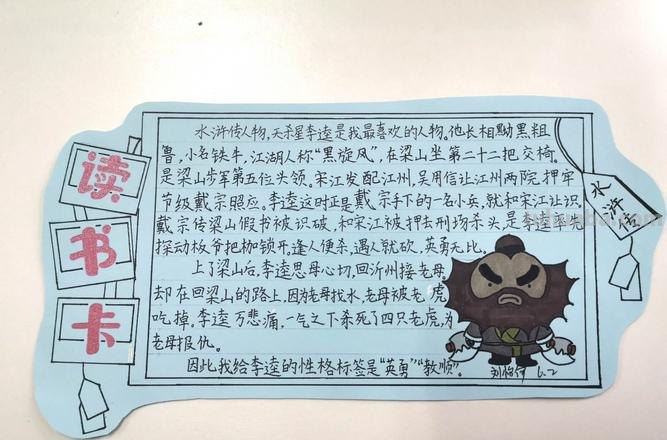 读书卡
水浒传
水浒传人物,天杀星李逵是我最喜欢的人物。他长相黝黑粗
鲁,小名铁牛,江湖人称“黑旋风”,在梁山坐第二十二把交椅。
是梁山步军第五位头领。宋江发配江州,吴用信让江州两院押牢
节级戴宗照应。李逵这时正是戴宗手下的一名小兵,就和宋江认识。
戴宗传梁山假书被识破,和宋江被押去刑场杀头,是李逵率先
探动板爷把枷锁开。逢人便杀,遇人就砍,英勇无比。
上了梁山后,李逵思母心切,回沂州接老母。
却在回梁山的路上,因为老母找水,老母被老虎
吃掉。李逵万悲痛,一气之下杀死了四只老虎,为
老母报仇。
因此我给李逵的性格标签是“英勇”“教顺”。
6.2